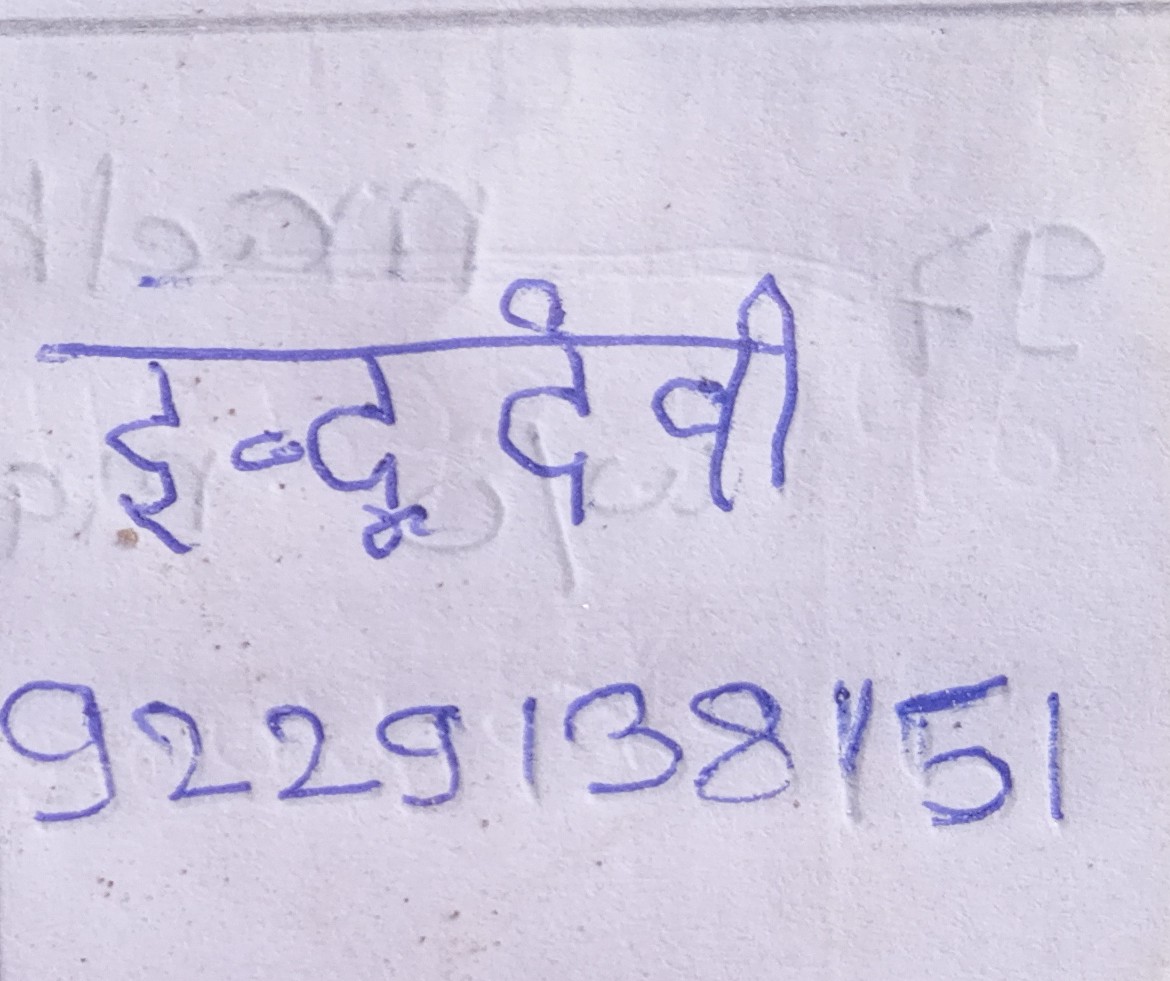 इन्दू देवी
9229138151